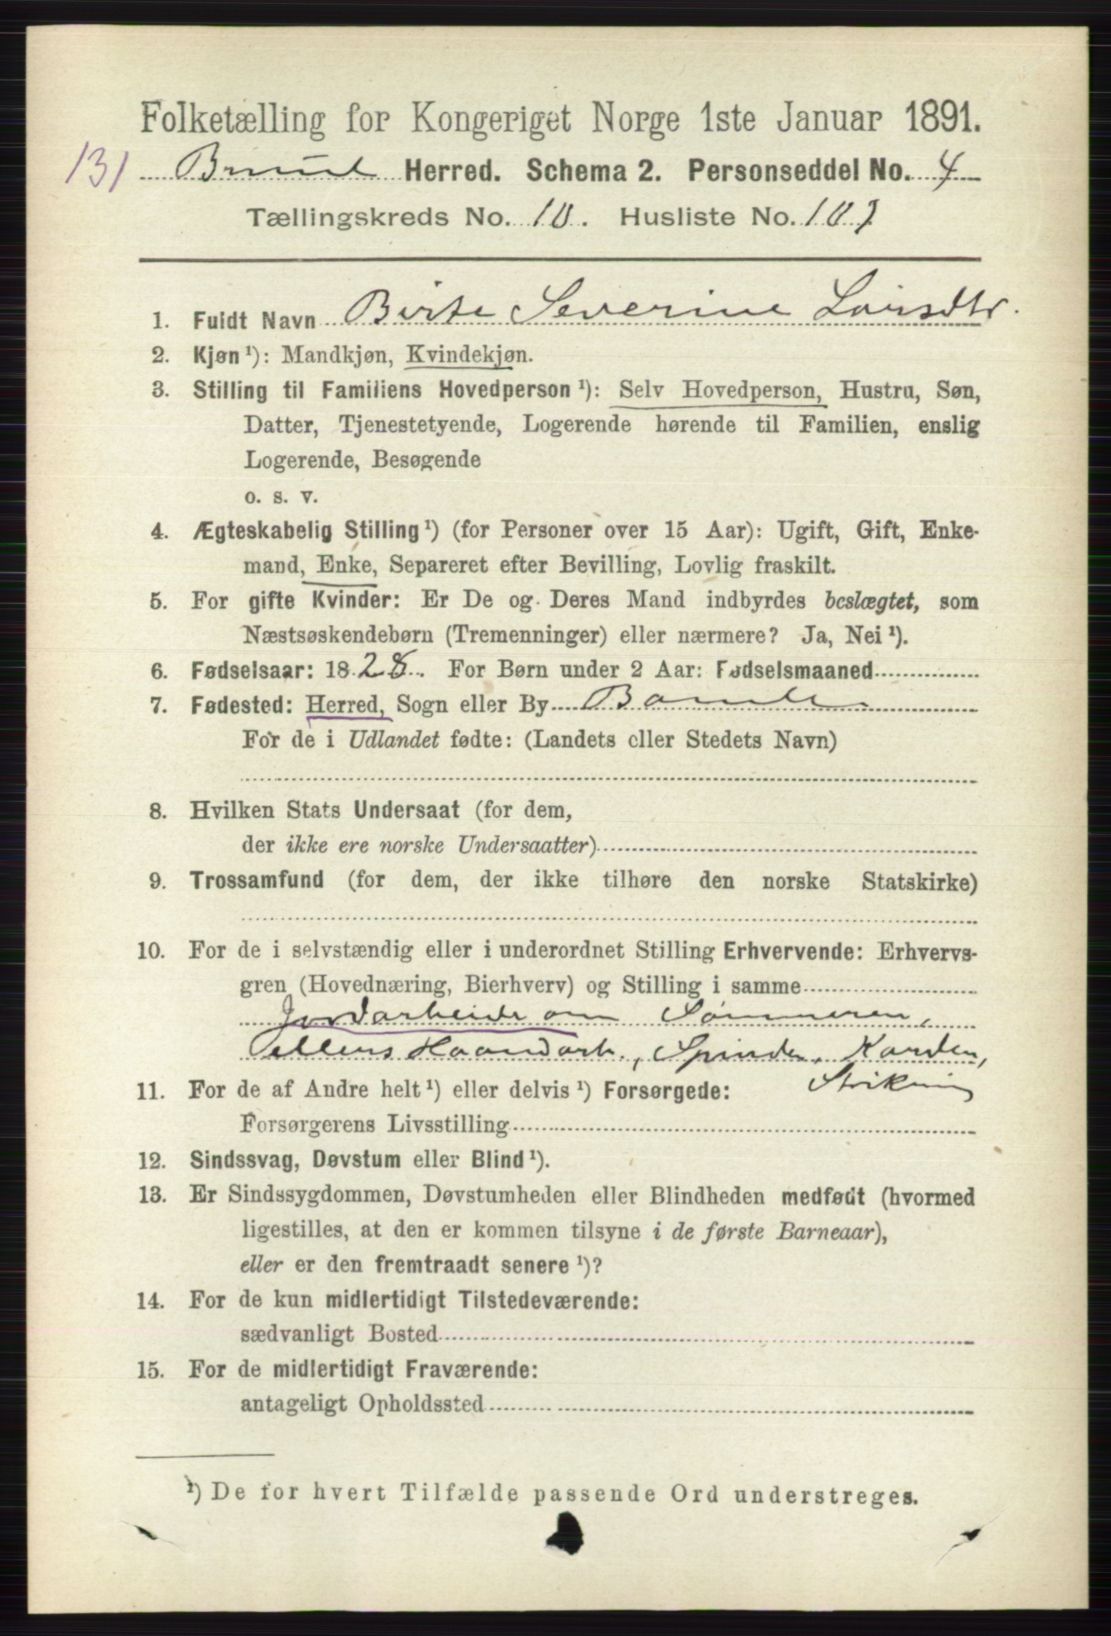 Folketælling for Kongeriget Norge 1ste Januar 1891.
131 Herred. Schema 2. Personseddel No. 4
Tællingskreds No. 10. Husliste No. 107
1. Fuldt Navn Birte Severine Larsdtr.
2. Kjøn ¹): Mandkjøn, Kvindekjøn.
3. Stilling til Familiens Hovedperson ¹): Selv Hovedperson, Hustru, Søn,
Datter, Tjenestetyende, Logerende hørende til Familien, enslig
Logerende, Besøgende
o. s. v.
4. Ægteskabelig Stilling ¹) (for Personer over 15 Aar): Ugift, Gift, Enke-
mand, Enke, Separeret efter Bevilling, Lovlig fraskilt.
5. For gifte Kvinder: Er De og Deres Mand indbyrdes beslægtet, som
Næstsøskendebørn (Tremenninger) eller nærmere? Ja, Nei ¹).
6. Fødselsaar: 1828. For Børn under 2 Aar: Fødselsmaaned
7. Fødested: Herred, Sogn eller By Bamle
For de i Udlandet fødte: (Landets eller Stedets Navn)
8. Hvilken Stats Undersaat (for dem,
der ikke ere norske Undersaatter)
9. Trossamfund (for dem, der ikke tilhøre den norske Statskirke)
10. For de i selvstændig eller i underordnet Stilling Erhvervende: Erhvervs-
gren (Hovednæring, Bierhverv) og Stilling i samme
Jordarbeide om Sommeren,
ellers Haandarb., Spinde, Karden,
Strikning
11. For de af Andre helt ¹) eller delvis ¹) Forsørgede:
Forsørgerens Livsstilling
12. Sindssvag, Døvstum eller Blind ¹).
13. Er Sindssygdommen, Døvstumheden eller Blindheden medfødt (hvormed
ligestilles, at den er kommen tilsyne i de første Barneaar),
eller er den fremtraadt senere ¹)?
14. For de kun midlertidigt Tilstedeværende:
sædvanligt Bosted
15. For de midlertidigt Fraværende:
antageligt Opholdssted
¹) De for hvert Tilfælde passende Ord understreges.